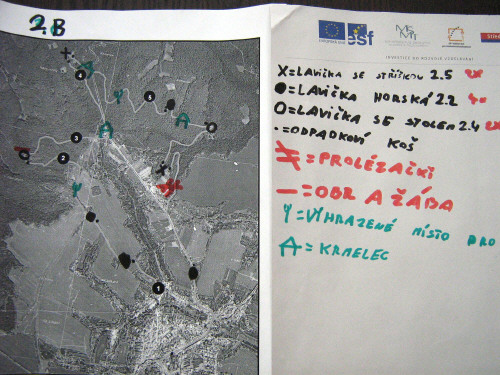 2.B
esf
INVESTICE DO ROZVOJE VZDĚLÁVÁNÍ
X=LAVIČKA SE STŘÍŠKOU 2.5 2x
●=LAVIČKA HORSKÁ 2.2 4x
O=LAVIČKA SE STOLEM 2.4 2x
.=ODPADKOVÍ KOŠ
=PROLÉZAČKI
—=OBR A ŽÁBA
Y=VYHRAZENÉ MÍSTO PRO
A=KRMELEC
4
5
3
2
1